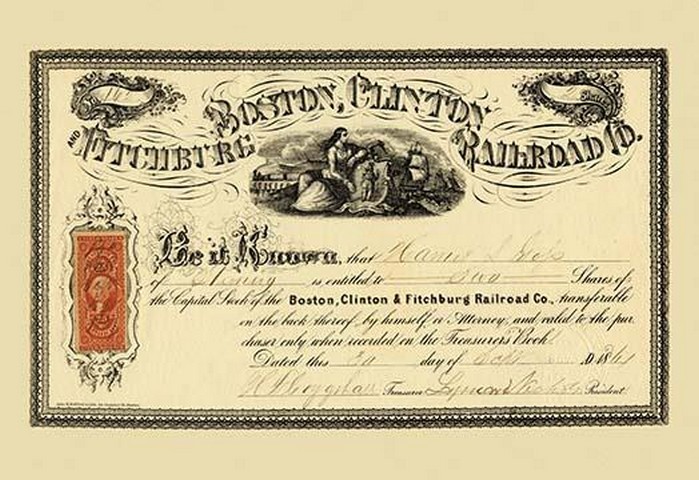 BOSTON, CLINTON
AND FITCHBURG RAILROAD CO.
Be it Known, that
of is entitled to Two Shares of
the Capital Stock of the Boston, Clinton & Fitchburg Railroad Co., transferable
on the back thereof by himself or Attorney, and valid to the pur
chaser only when recorded on the Treasurers Book
Dated this day of Sept
Treasurer Lyman Nichols President